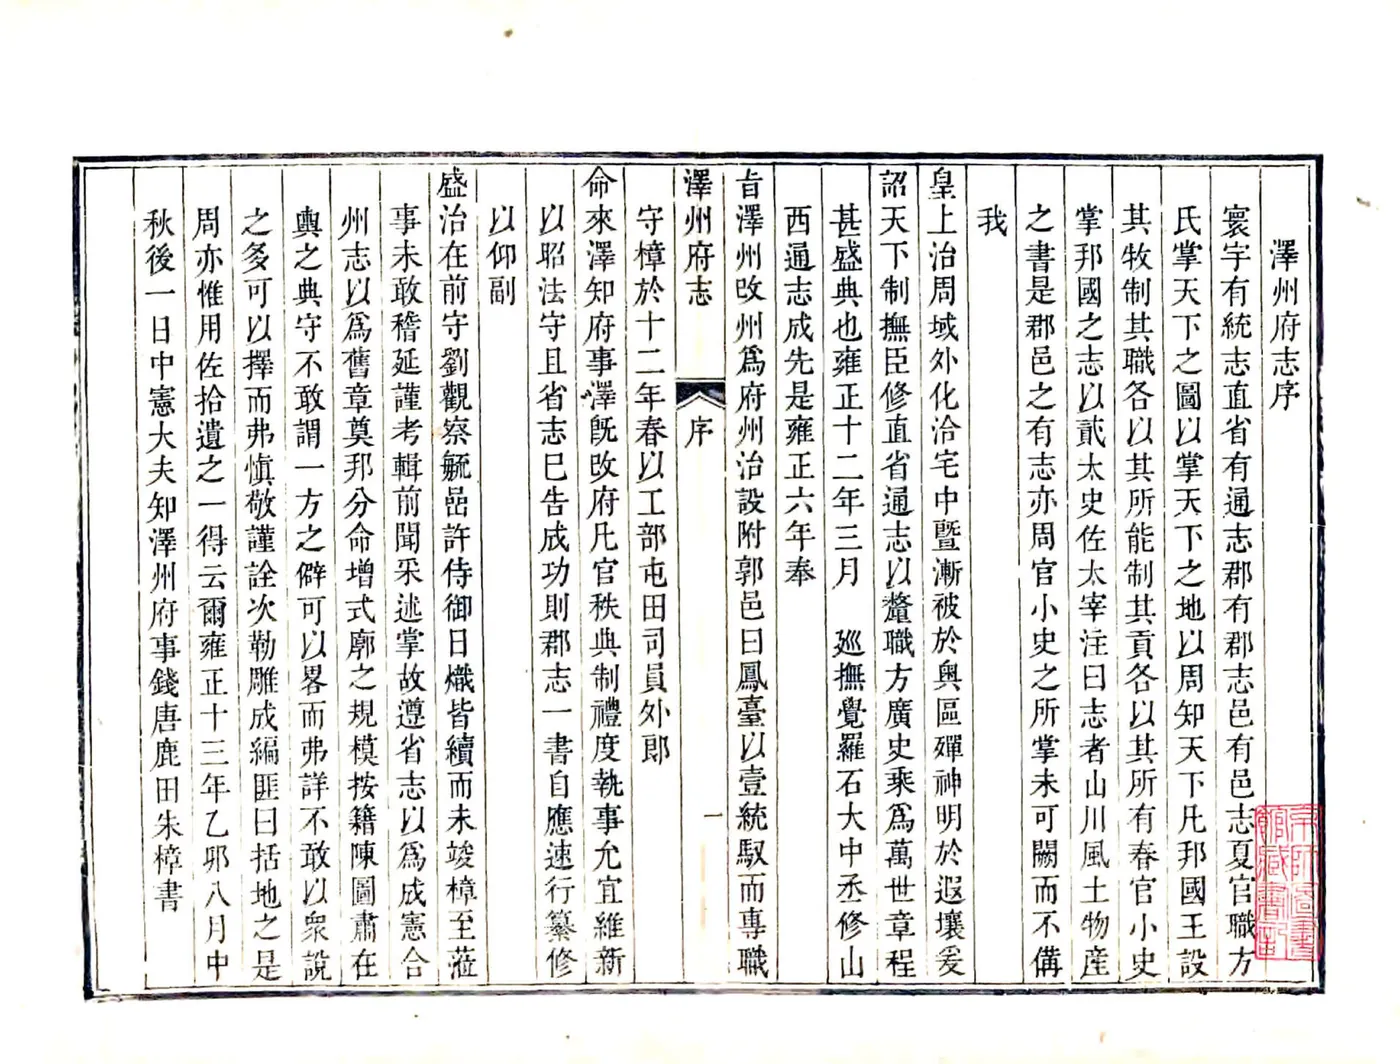 澤州府志序
寰宇有統志直省有通志郡有郡志邑有邑志夏官職方
氏掌天下之圖以掌天下之地以周知天下凡邦國王設
其牧制其職各以其所能制其貢各以其所有春官小史
掌邦國之志以貳太史佐太宰注曰志者山川風土物産
之書是郡邑之有志亦周官小史之所掌未可闕而不備
我
皇上治周域外化洽宅中暨漸被於奧區殫神明於遐壤爰
詔天下制撫臣修直省通志以釐職方廣史乘爲萬世章程
甚盛典也雍正十二年三月 廵撫覺羅石大中丞修山
西通志成先是雍正六年奉
旨澤州改州爲府州治設附郭邑曰鳳臺以壹統馭而專職
澤州府志 序 一
守樟於十二年春以工部屯田司員外郎
命來澤知府事澤旣改府凡官秩典制禮度執事允宜維新
以昭法守且省志巳告成功則郡志一書自應速行纂修
以仰副
盛治在前守劉觀察毓嵒許侍御日熾皆續而未竣樟至蒞
事未敢稽延謹考輯前聞采述掌故遵省志以爲成憲合
州志以爲舊章奠邦分命增式廓之規模按籍陳圖肅在
輿之典守不敢謂一方之僻可以畧而弗詳不敢以衆說
之多可以擇而弗愼敬謹詮次勒雕成編匪曰括地之是
周亦惟用佐拾遺之一得云爾雍正十三年乙夘八月中
秋後一日中憲大夫知澤州府事錢唐鹿田朱樟書
京師圖書
館藏書記